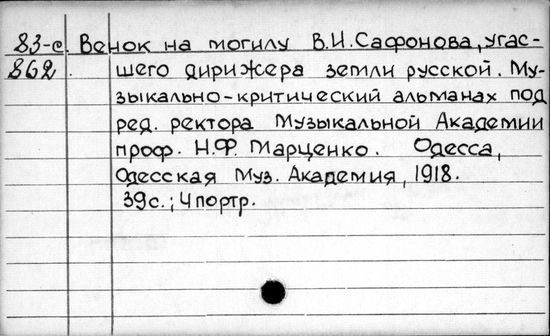 83-с Венок на могилу В.И.Сафонова, угас-
862 шего дирижера земли русской. Му-
зыкально-критический альманах под
ред. ректора Музыкальной Академии
проф. Н.Ф. Марценко. Одесса,
Одесская Муз. Академия, 1918.
39с.; 4 портр.